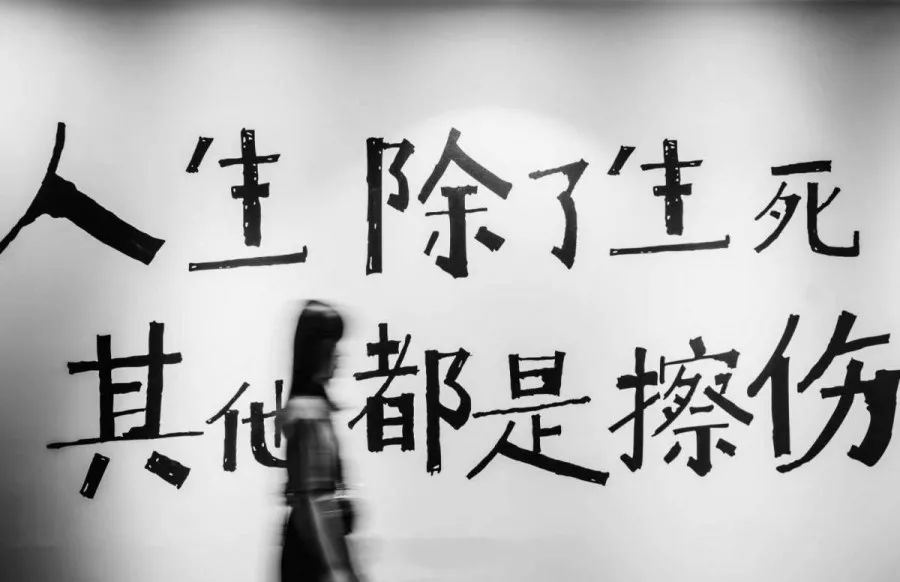 人生除了生死
其他都是擦伤